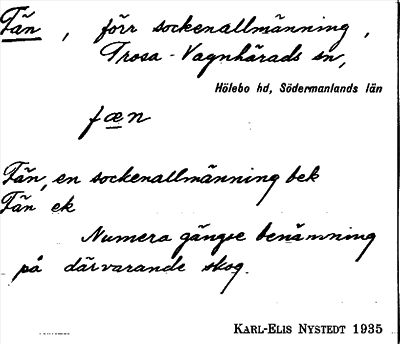 Fän, förr sockenallmänning,
Trosa-Vagnhärads sn,
Hölebo hd, Södermanlands län
fæn
Fän, en sockenallmänning bek
Fän ek
Numera gängse benämning
på därvarande skog.
KARL-ELIS NYSTEDT 1935